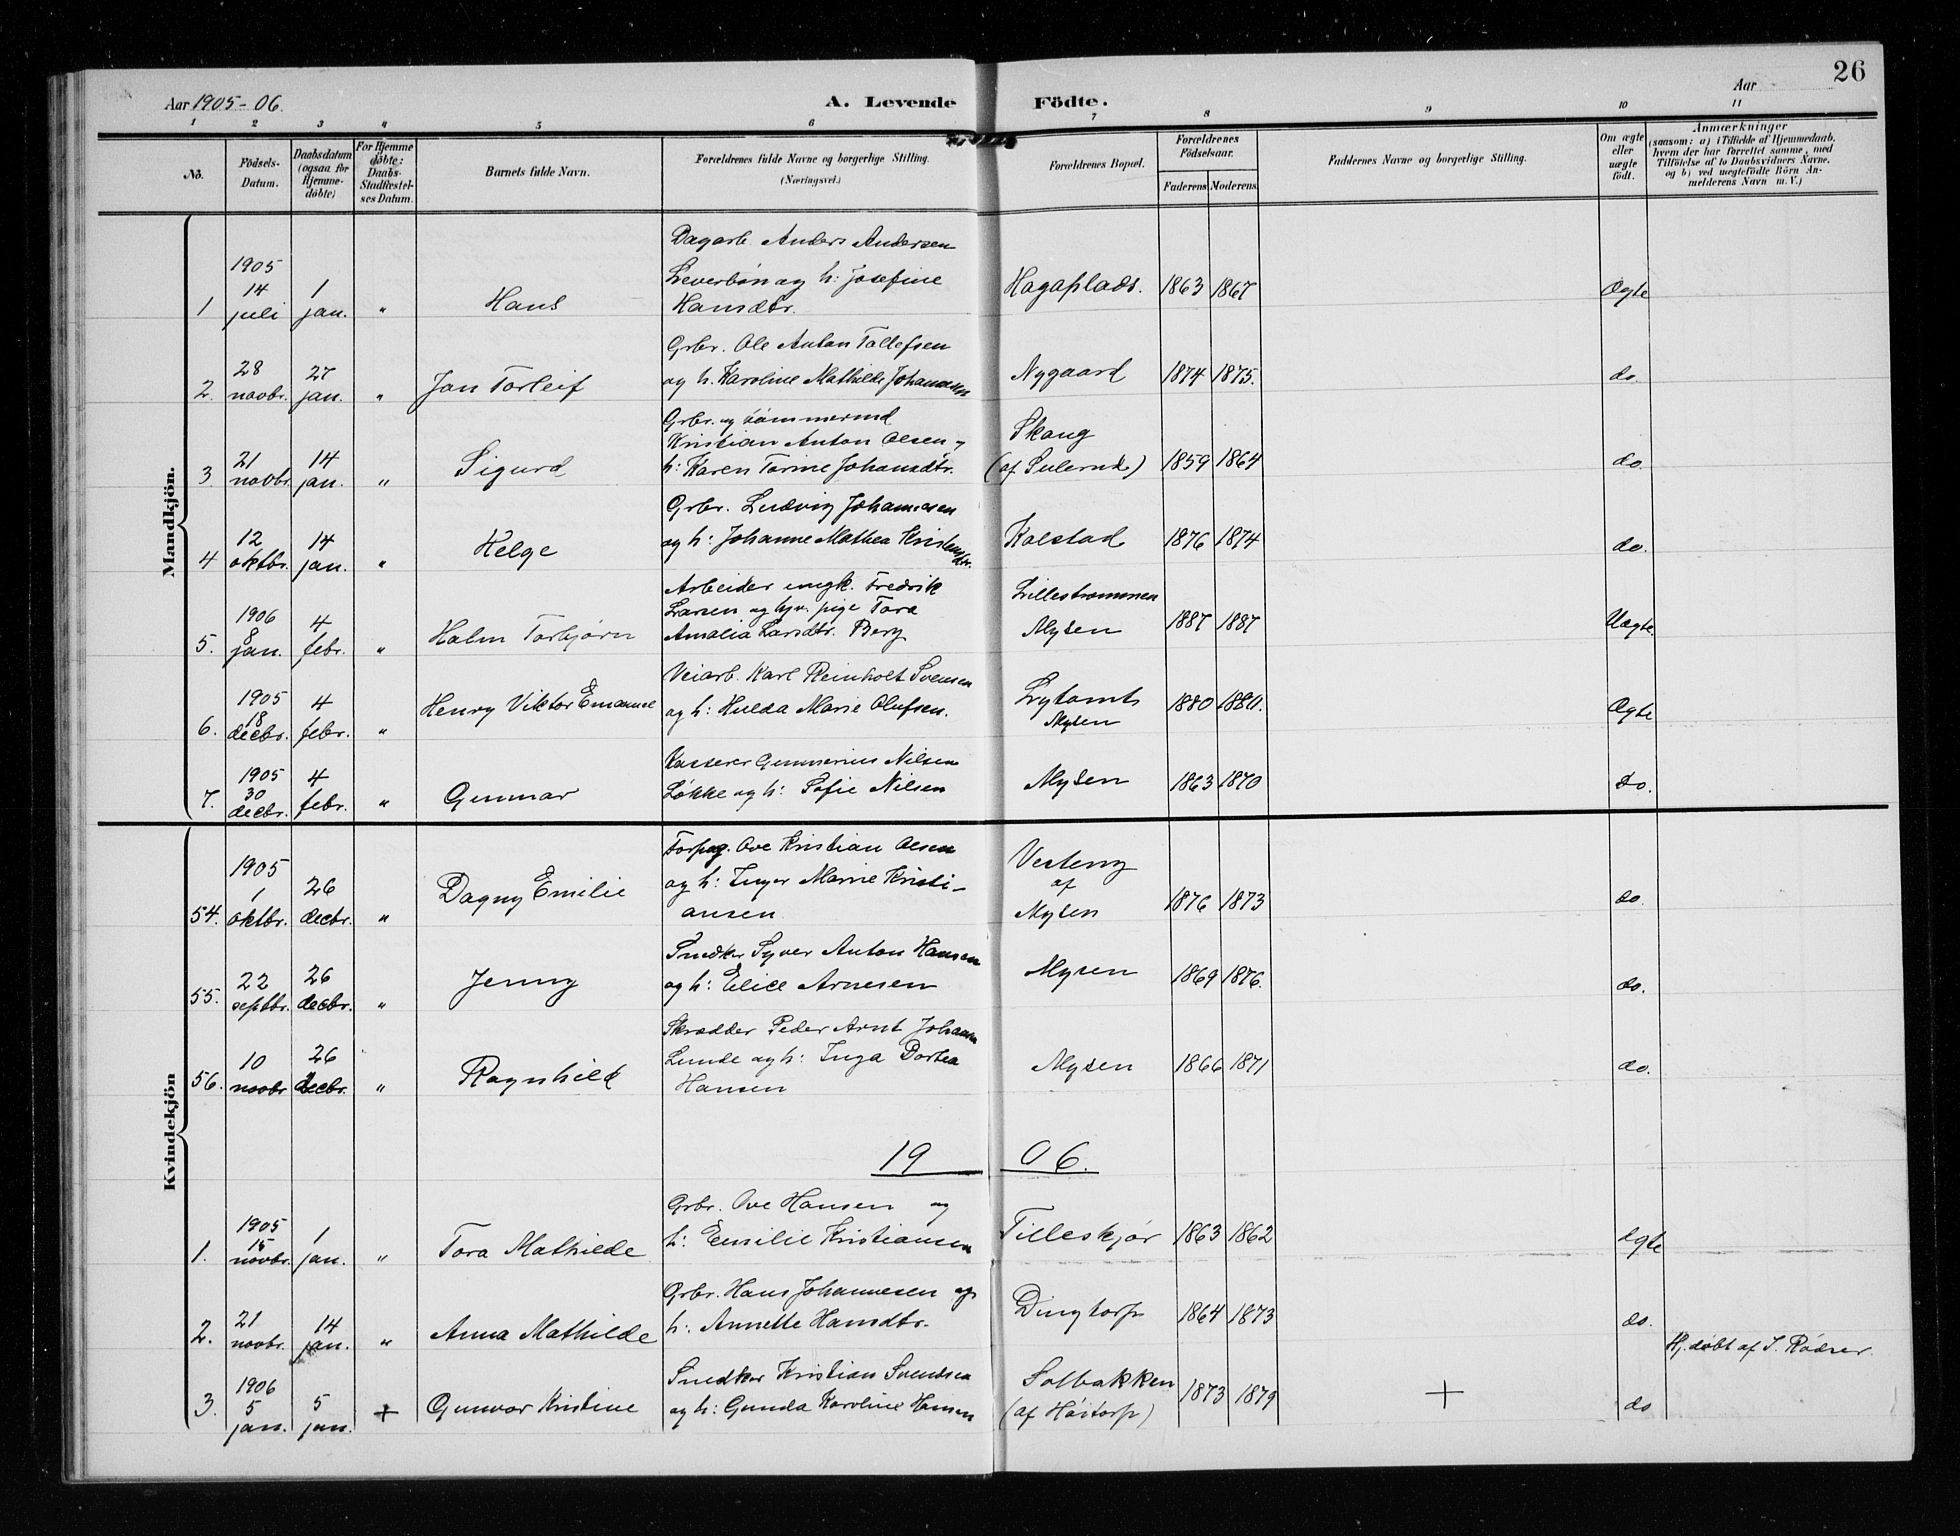 Aar 1905-06.
A. Levende
Födte.
Aar
26
1 2 3 4 5 6 7 8 9 10 11
No.
Födsels-
Datum.
Daabsdatum
(ogsaa for
Hjemme-
döbte)
For Hjemme
döbte:
Daabs-
Stadfæstel-
ses Datum.
Barnets fulde Navn.
Forældrenes fulde Navne og borgerlige Stilling.
(Næringsvei.)
Forældrenes Bopæl.
Forældrenes
Födselsaar.
Faderens Moderens
Faddernes Navne og borgerlige Stilling.
Om ægte
eller
uægte
födt.
Anmærkninger
(saasom: a) i Tilfælde af Hjemmedaab,
hvem der har forrettet samme, med
Tilföielse af to Daabsvidners Navne,
og b) ved uægtefödte Börn An-
melderens Navn m. V.)
Mandkjön.
Dagarb. Anders Andersen
1905
14 1 Leverbøn og h: Josefine Hagaplads. 1863 1867 Ægte
1 juli jan. " Hans Hansdtr.
Grbr. Ole Anton Tollefsen
28 27 Nygaard 1874 1875. do.
2. novbr. jan. " Jan Torleif og h. Karoline Mathilde Johannesen
Grbr. og tømmermd
Kristian Anton Olsen, Skaug
21 14 Sigurd h: Karen Torine Johansdtr. (af Sulerud) 1859 1864 do.
3. novbr. jan. "
Grbr. Ludvig Johannesen
12 14 Helge og h: Johanne Mathea Kristensdtr. Kolstad 1876 1874 do.
4 oktbr. jan. "
Arbeider ungk. Fredrik Lillestrømmen
1906 Larsen og hjv. pige Tora 1887 1887 Uægte.
8 4 Holm Torbjørn Amalia Larsdtr. Berg Mysen
5. jan. febr. "
Veiarb. Karl Reinholt Svensen
1905
18 4 Henry Viktor Emanuel og h: Hulda Marie Olufsen. 1880 1880. Ægte
Mysen
6. decbr. febr. "
Kasserer Gunnerius Nilsen
1905 Mysen
30 4 Gunnar Løkke og h: Sofie Nilsen 1863 1870 do.
7. decbr. febr. "
Kvindekjön
Forpag. Ove Kristian Olsen Vesteng
1905 af
1 26 Dagny Emilie og h: Inger Marie Kristi- Mysen 1876 1873 do.
54. oktbr. decbr. " ansen
Snedker Syver Anton Hansen
22 26 Jenny og h: Elise Arnesen Mysen 1869 1876. do.
55. septbr. decbr. "
Skrædder Peder Arnt Johansen
10 26 Lunde og h: Inga Dortea Mysen 1866 1871 do.
56. novbr decbr. " Ragnhild Hansen
19 06.
Grbr. Ove Hansen og
1905
15 1 h: Emilie Kristiansen Tilleskjør 1863 1862 Ægte
1. novbr. jan. " Tora Mathilde
Grbr. Hans Johannesen og
21 14 h: Annette Hansdtr. Dingtorp 1864 1873 do.
2. novbr. jan. " Anna Mathilde
Hj. døbt af I. Rødser.
Snedker Kristian Svendsen Solbakken
1906
5 5 Gunvor Kristine og h: Gunda Karoline Hansen (af Høitorp) 1873 1879 + do
3. jan. jan. +